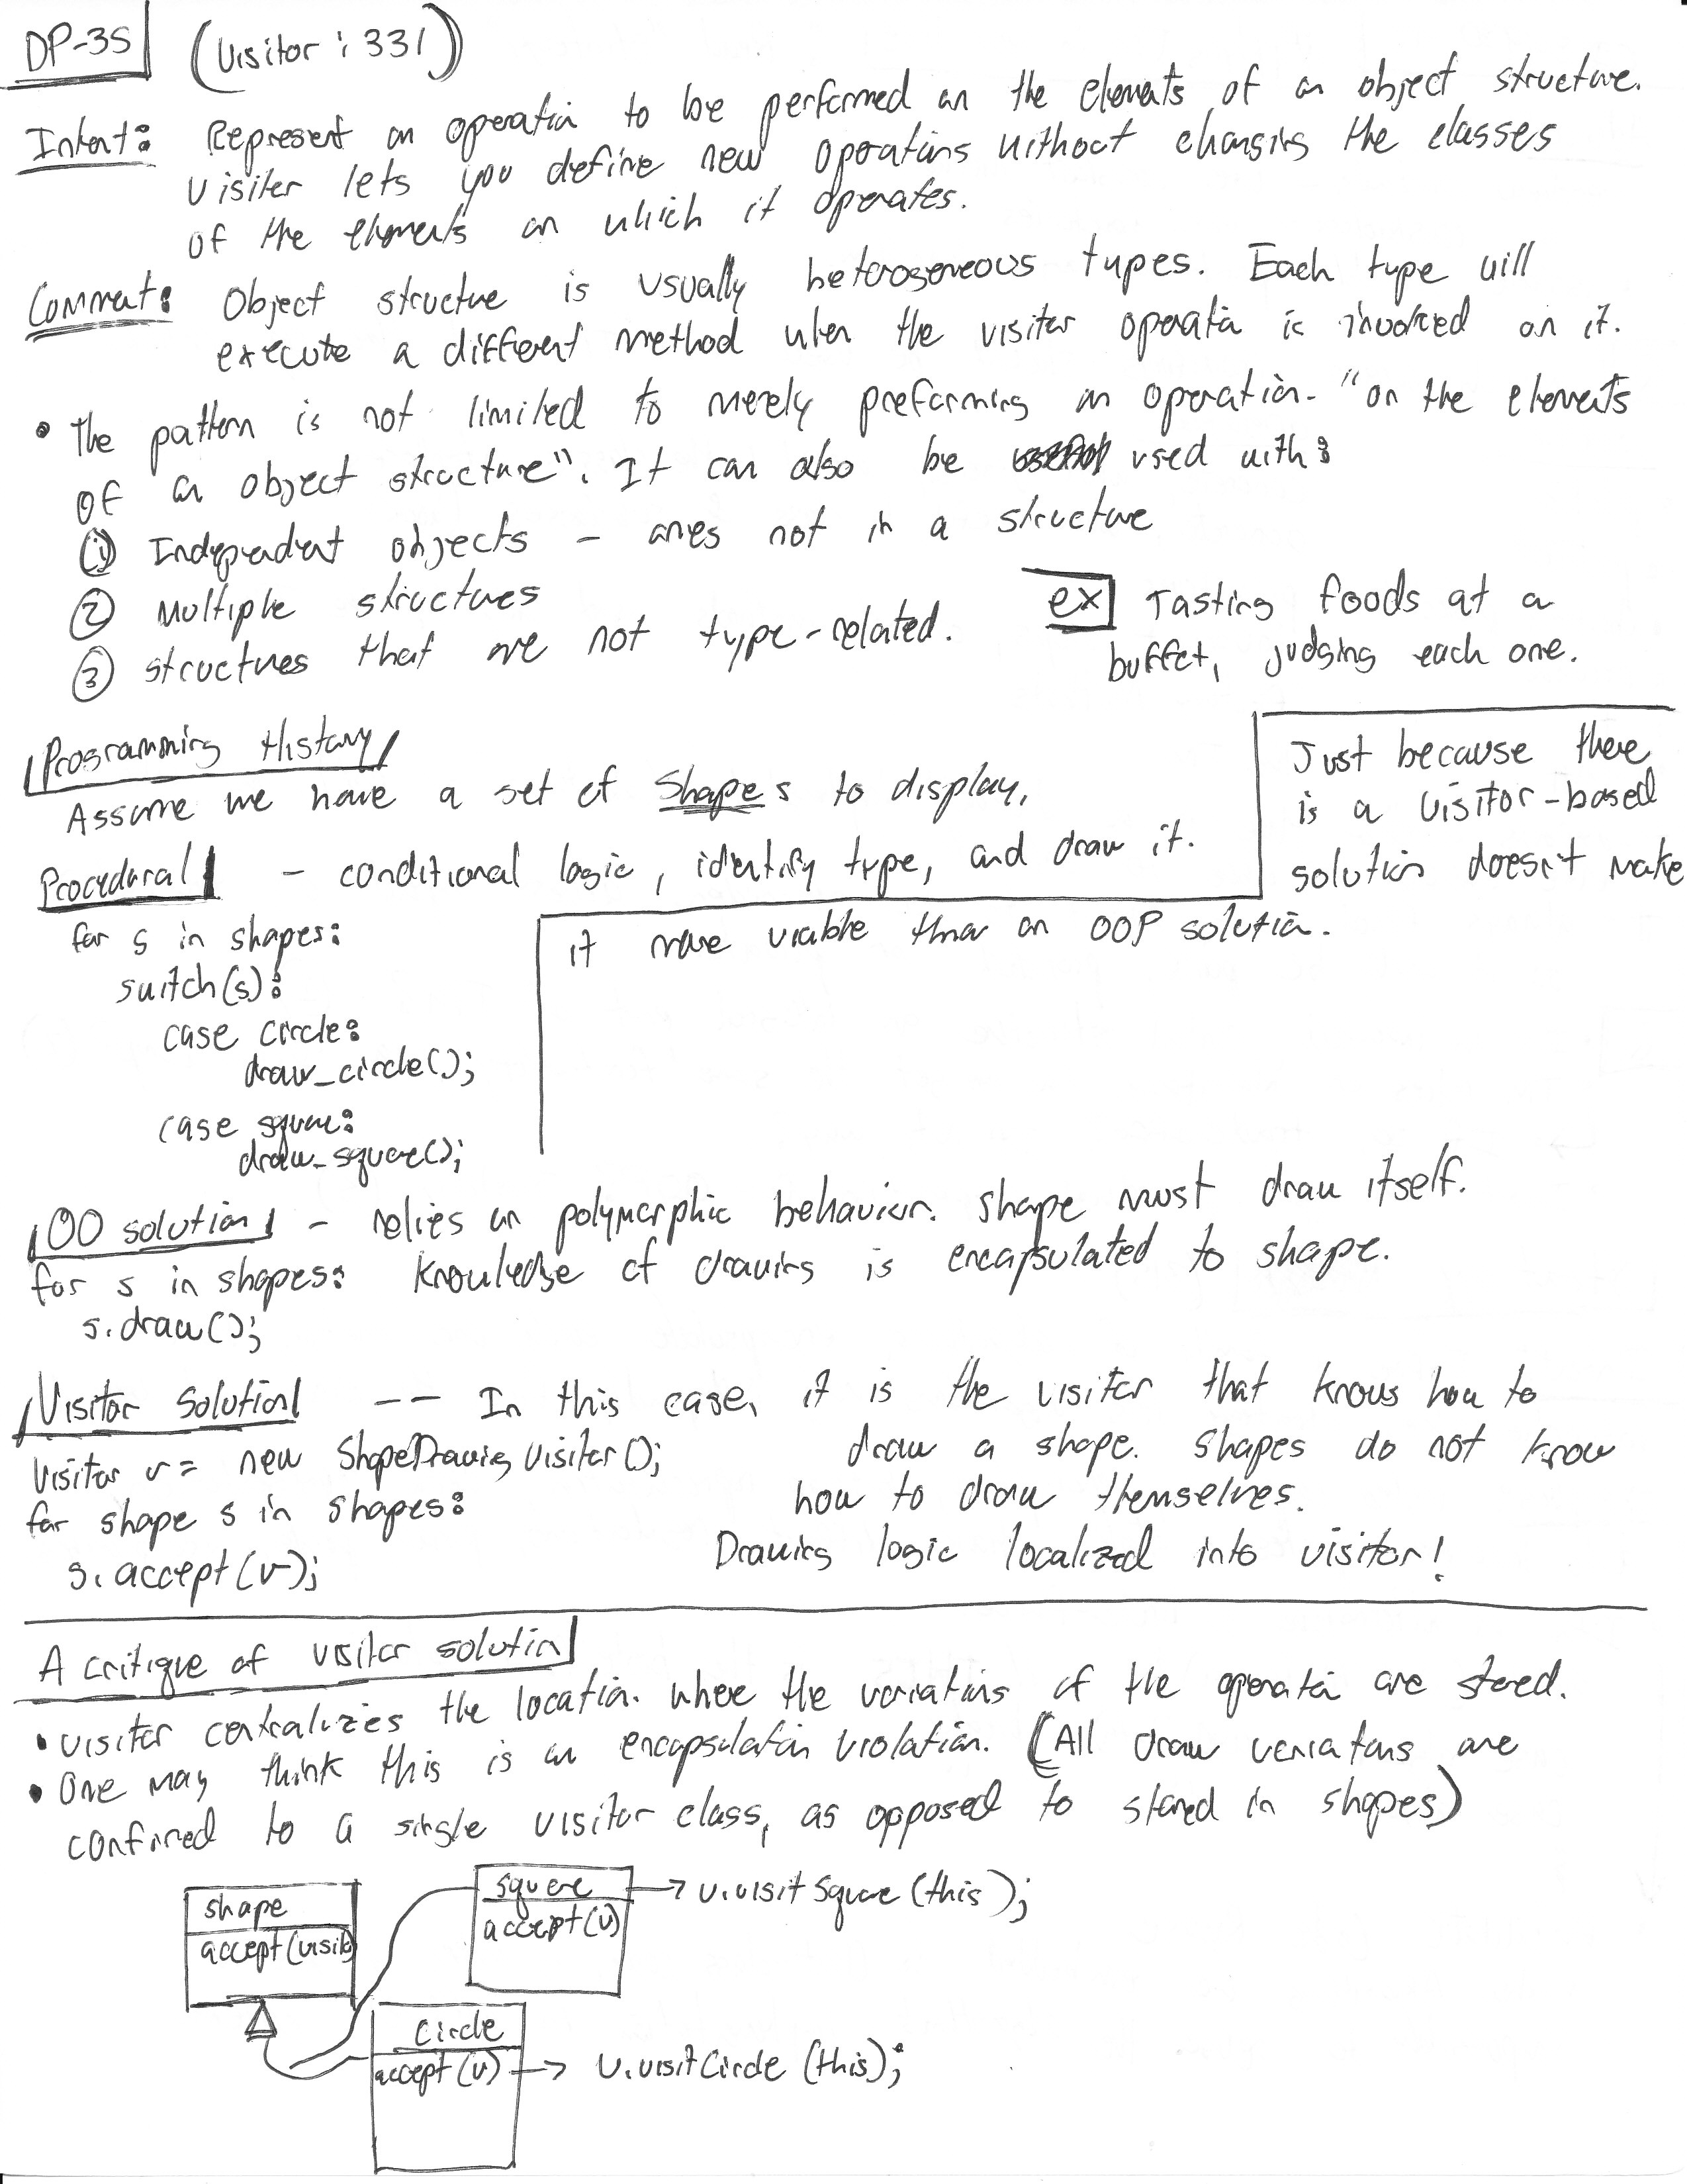 DP-35 (Visitor : 331)
Intent: Represent an operation to be performed on the elements of an object structure.
Visitor lets you define new operations without changing the classes
of the elements on which it operates.
Comment: Object structure is usually heterogeneous types. Each type will
execute a different method when the visitor operation is invoked on it.
• The pattern is not limited to merely preforming an operation "on the elements
of an object structure". It can also be used with:
① Independent objects - ones not in a structure
② Multiple structures
③ structures that are not type-related.
ex Tasting foods at a
buffet, judging each one.
Programming History
Assume we have a set of Shapes to display,
Procedural - conditional logic, identify type, and draw it.
for s in shapes:
switch(s):
case circle:
draw_circle();
case square:
draw_square();
Just because there
is a visitor-based
solution doesn't make
it more viable than an OOP solution.
OO solution - relies on polymorphic behavior. shape must draw itself.
for s in shapes: Knowledge of drawing is encapsulated to shape.
s.draw();
Visitor Solution -- In this case, it is the visitor that knows how to
draw a shape. Shapes do not know
how to draw themselves.
Drawing logic localized into visitor!
Visitor v = new ShapeDrawingVisitor();
for shape s in shapes:
s.accept(v);
A critique of visitor solution
• visitor centralizes the location where the variations of the operation are stored.
• One may think this is an encapsulation violation. (All draw variations are
confined to a single visitor class, as opposed to stored in shapes)
shape
accept(visit)
square
accept(v)
→ v.visitSquare(this);
Circle
accept(v)
→ v.visitCircle(this);